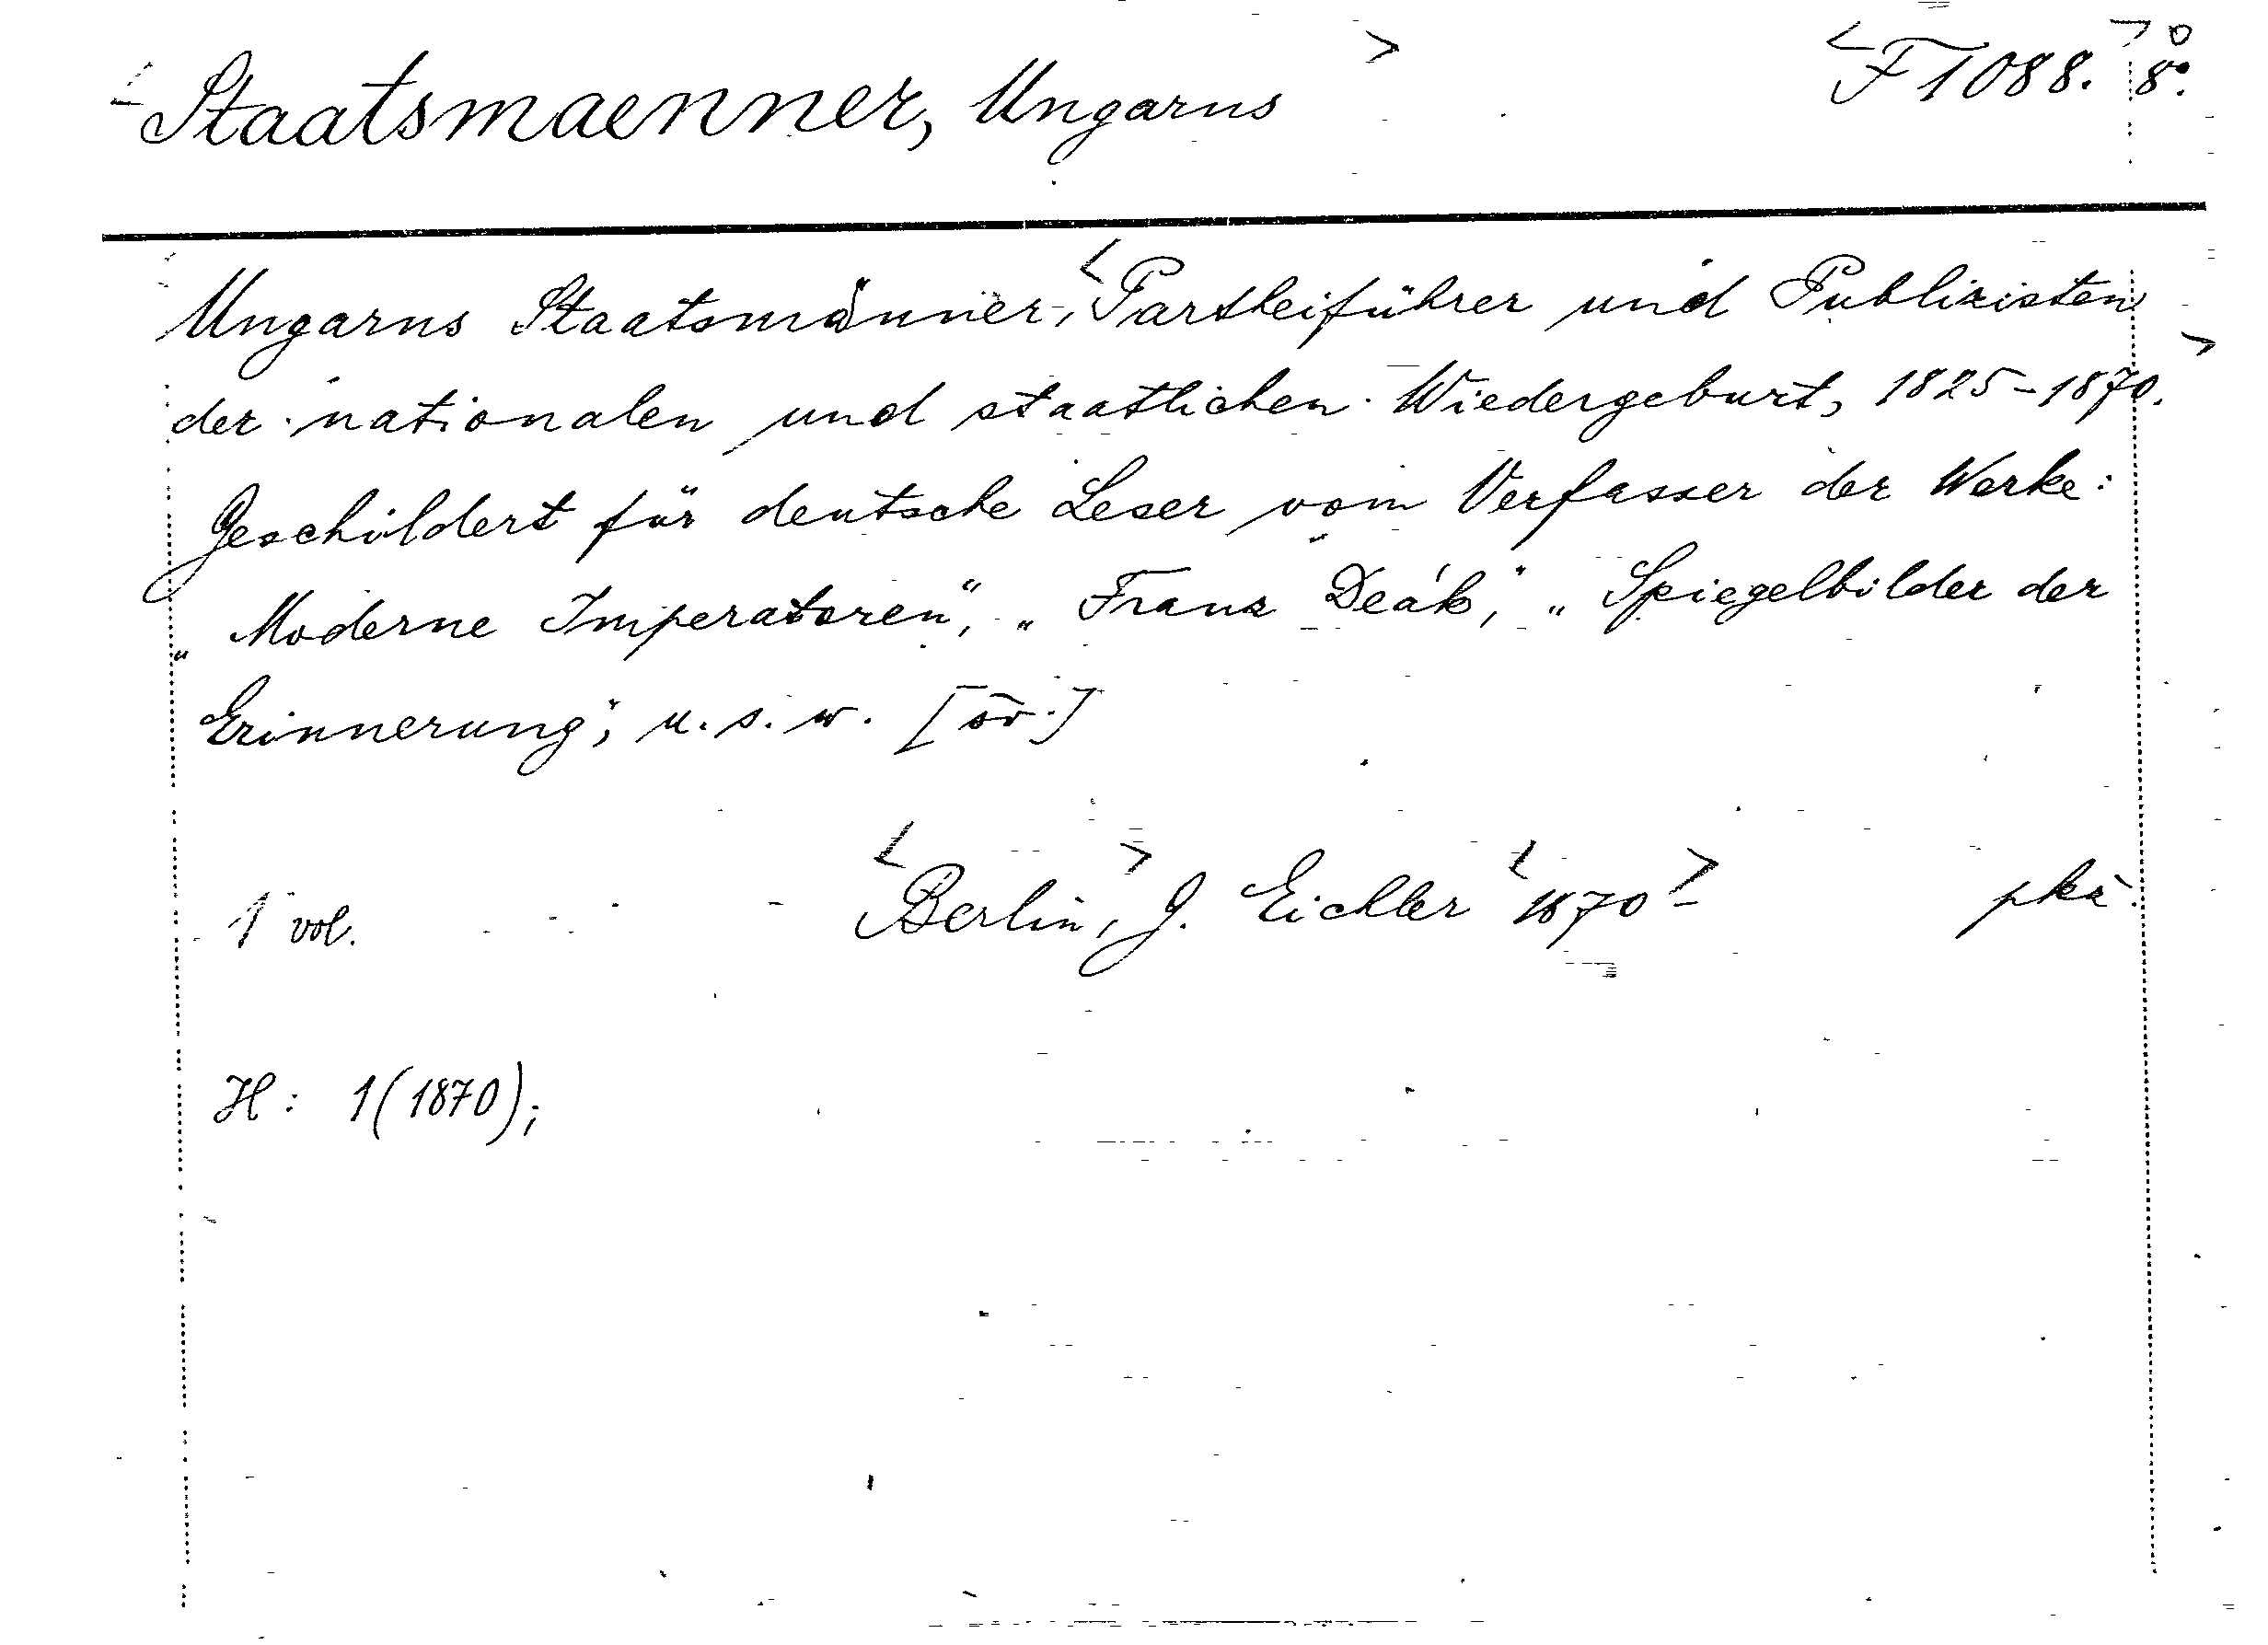 <Staatsmaenner, Ungarns> <F 1088.> 8°.
Ungarns Staatsmänner, <Partheiführer und Publizisten
der nationalen und staatlichen Wiedergeburt, 1825-1870.>
Geschildert für deutsche Leser vom Verfasser der Werke:
„Moderne Imperatoren", „Franz Deák", „Spiegelbilder der
Erinnerung", u. s. w. [sv.]
1 vol. <Berlin>, J. Eichler <1870>-
H: 1(1870);